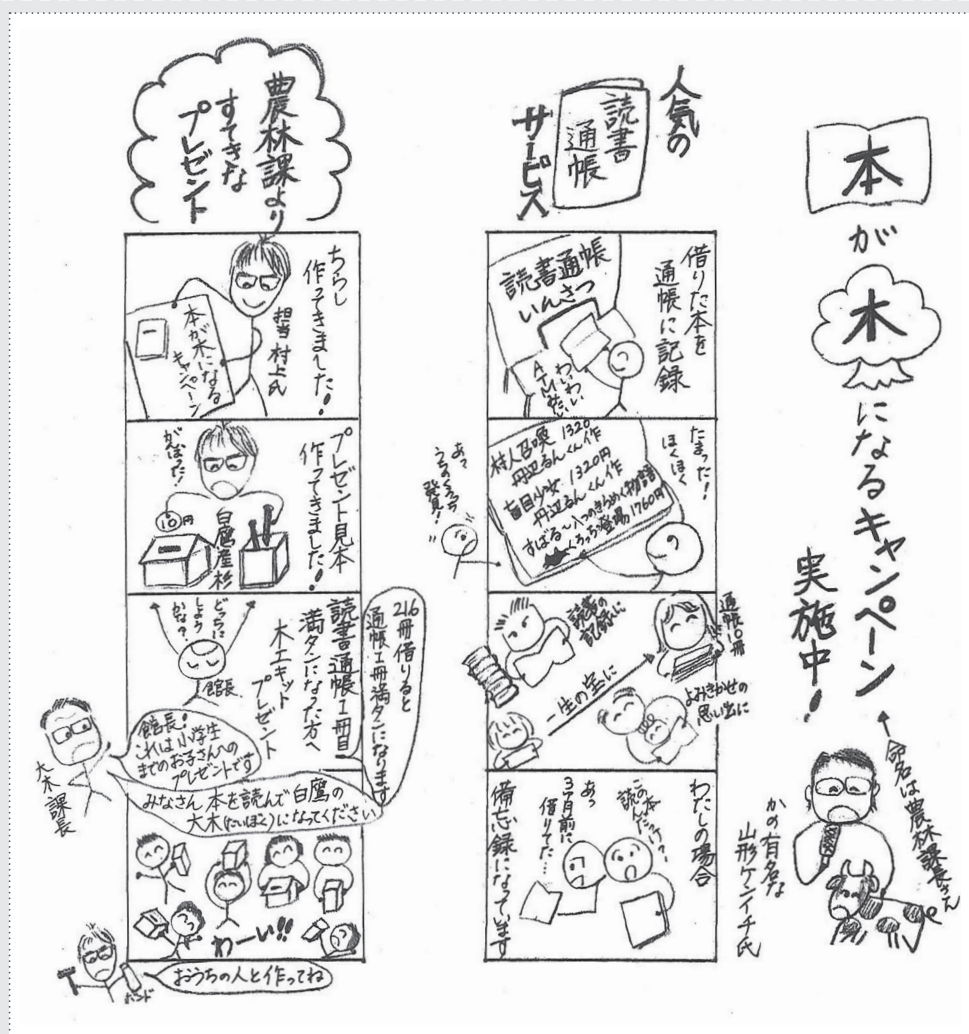 本
が
木
になるキャンペーン
実施中!
←命名は農林課長さん
かの有名な
山形ケンイチ氏
人気の
読書
通帳
サービス
借りた本を
通帳に記録
読書通帳
いんさつ
わっわい
ATMみたい
たまった!
ほくほく
村人召喚 1320
丹辺るんくん作
盲目少女 1320円
丹辺るんくん作
すばる~八つのきらめく物語
くろっち登場 1760円
あっ
うちのくろっち
発見!
読書の
記録に
通帳10冊
一生の宝に
よみきかせの
思い出に
わたしの場合
この本
読んだっけ?
あっ
3ヶ月前に
借りてた…
備忘録になっています
農林課より
すてきな
プレゼント
ちらし
作ってきました!
担当 村上氏
本が木になる
キャンペーン
プレゼント見本
作ってきました!
がんばった!
10円
白鷹産杉
216冊借りると
通帳1冊満タンになります
読書通帳1冊目
満タンになった方へ
木工キット
プレゼント
どっちに
しよう
かな?
館長
館長!
これは小学生
までのお子さんへの
プレゼントです
大木課長
みなさん 本を読んで白鷹の
大木(たいぼく)になってください
わーい!!
おうちの人と作ってね
ボンド